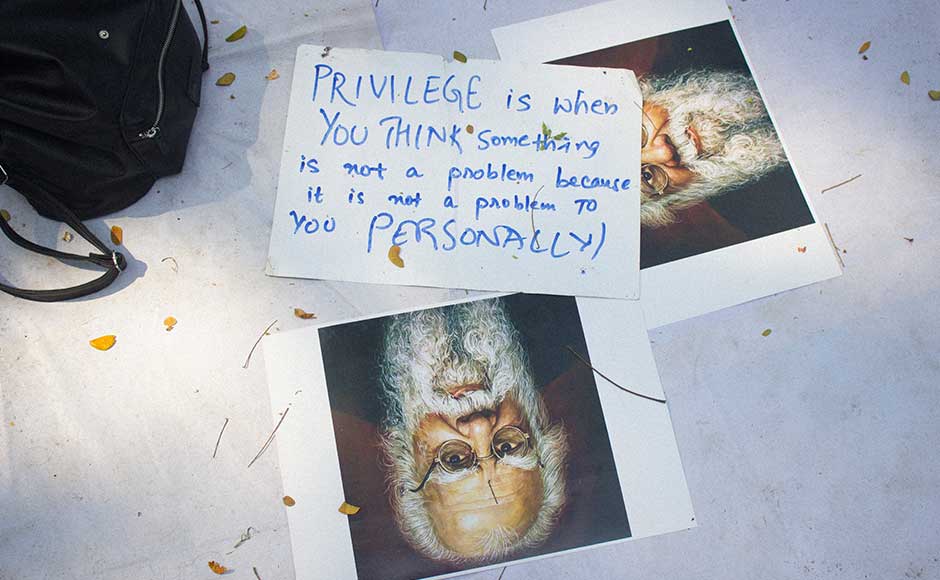 PRIVILEGE is when
YOU THINK something
is not a problem because
it is not a problem TO
YOU PERSONALLY!